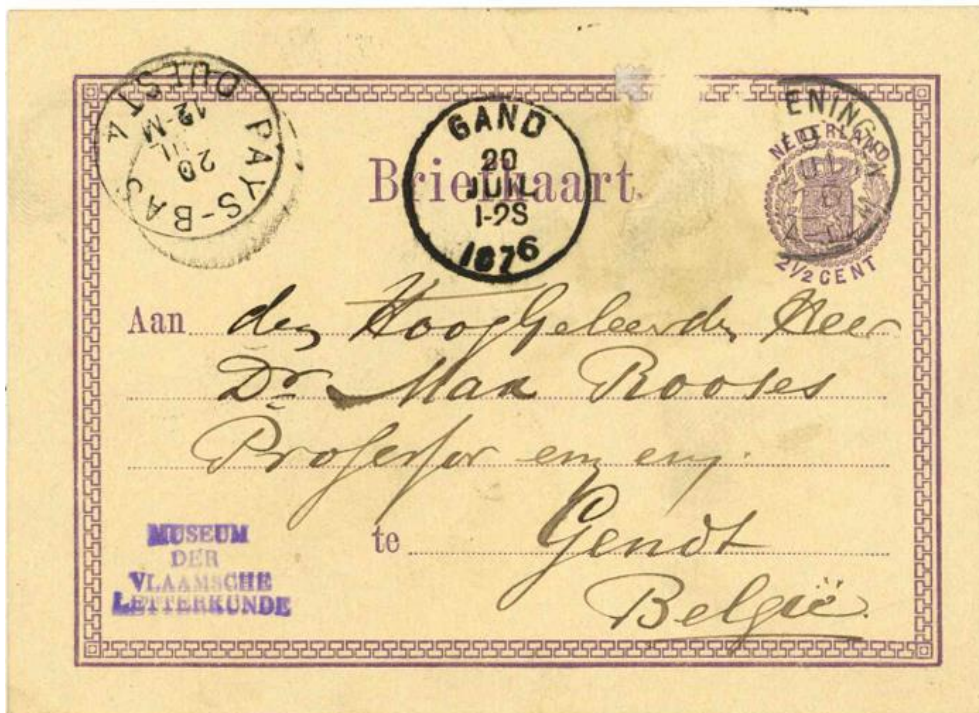 PAYS-BAS
OUEST 4
20
12-M
GAND
20
JUIL
1-2S
1876
ENINGEN
NEDERLAND
2½ CENT
Briefkaart
Aan den HoogGeleerden Heer
Dr. Max Rooses
Professor enz enz.
te Gendt
België
MUSEUM
DER
VLAAMSCHE
LETTERKUNDE